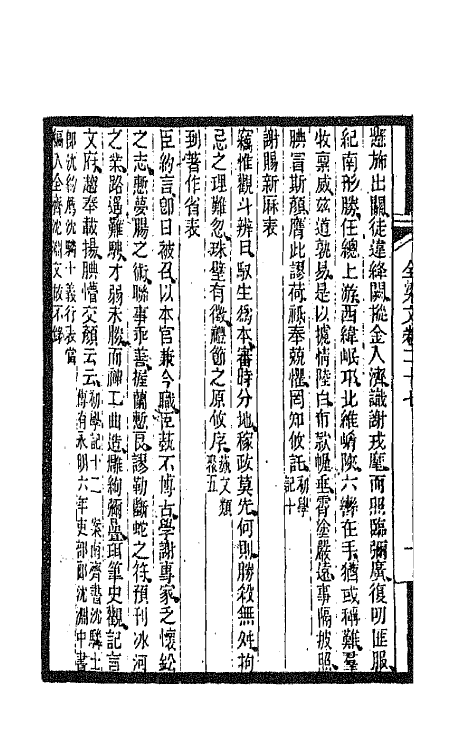 懸施出關徒違絳闕摐金入濟識謝戎麾而照臨彌廣復叨匪服
紀南形勝任總上游西緯岷邛北維崤陝六轡在手猶或稱難羣
牧稟威茲道孰易是以據情陸自布款幄垂霄塗嚴遠事隔披照
腆冒斯顏膺此謬荷祗奉兢懼罔知攸託初學記十
謝賜新麻表
竊惟觀斗辨日馭生為本審時分地稼政莫先何則勝殺無舛拘
忌之理難忽珠璧有徵禮節之原攸序藝文類聚五
到著作省表
臣約言卽日被召以本官兼今職臣藝不博古學謝專家乏懷鉛
之志慙夢腸之術聯事乖善握蘭慙良謬勒斷蛇之符預刊冰河
之業路遇難騁才弱未勝而神工曲造雕絢彌疊珥筆史觀記言
文府趨奉載揚腆懵交顏云云初學記十二 案南齊書沈驎士傳有永明六年吏部郎沈淵中書
郎沈約薦沈驎士義行表當
編入全齊沈淵文故不錄
全梁文卷二十七